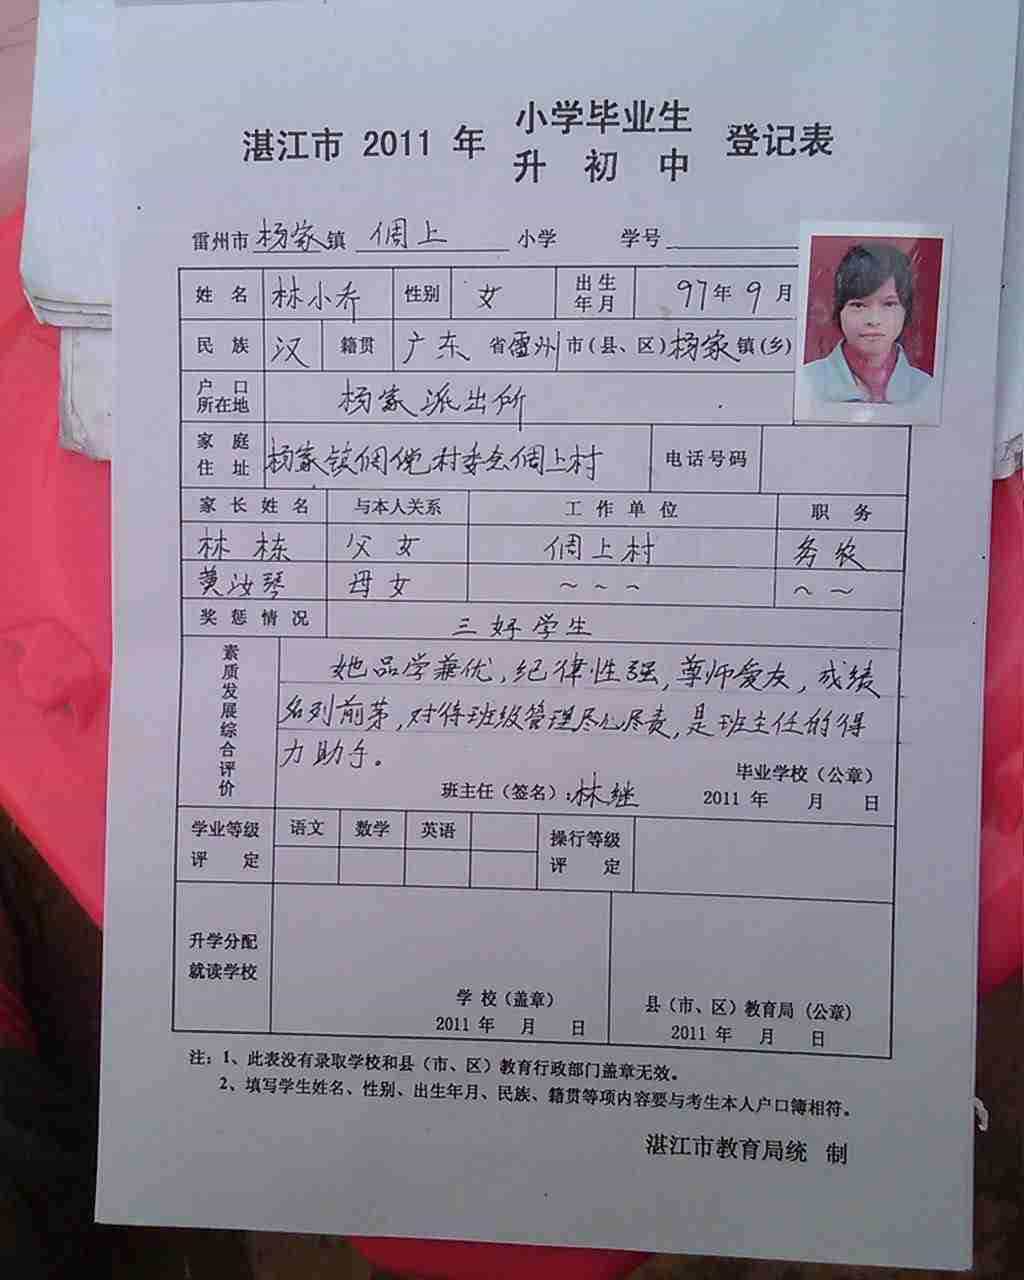 湛江市 2011 年 小学毕业生 登记表
升 初 中
雷州市 杨家 镇 倜上 小学 学号
姓 名 林小乔 性别 女 出生年月 97年 9 月
民 族 汉 籍贯 广东 省 雷州 市(县、区) 杨家 镇(乡)
户 口 所在地 杨家派出所
家 庭 住 址 杨家镇倜傥村委会倜上村 电话号码
家 长 姓 名 与本人关系 工 作 单 位 职 务
林 栋 父 女 倜上村 务农
黄汝琴 母 女 ~ ~ ~ ~ ~
奖 惩 情 况 三好学生
素质发展综合评价
她品学兼优,纪律性强,尊师爱友,成绩
名列前茅,对待班级管理尽心尽责,是班主任的得
力助手。
毕业学校(公章)
班主任(签名):林继 2011 年 月 日
学业等级 评 定 语文 数学 英语 操行等级 评 定
升学分配
就读学校
学 校(盖章) 县(市、区)教育局(公章)
2011 年 月 日 2011 年 月 日
注:1、此表没有录取学校和县(市、区)教育行政部门盖章无效。
2、填写学生姓名、性别、出生年月、民族、籍贯等项内容要与考生本人户口簿相符。
湛江市教育局统 制